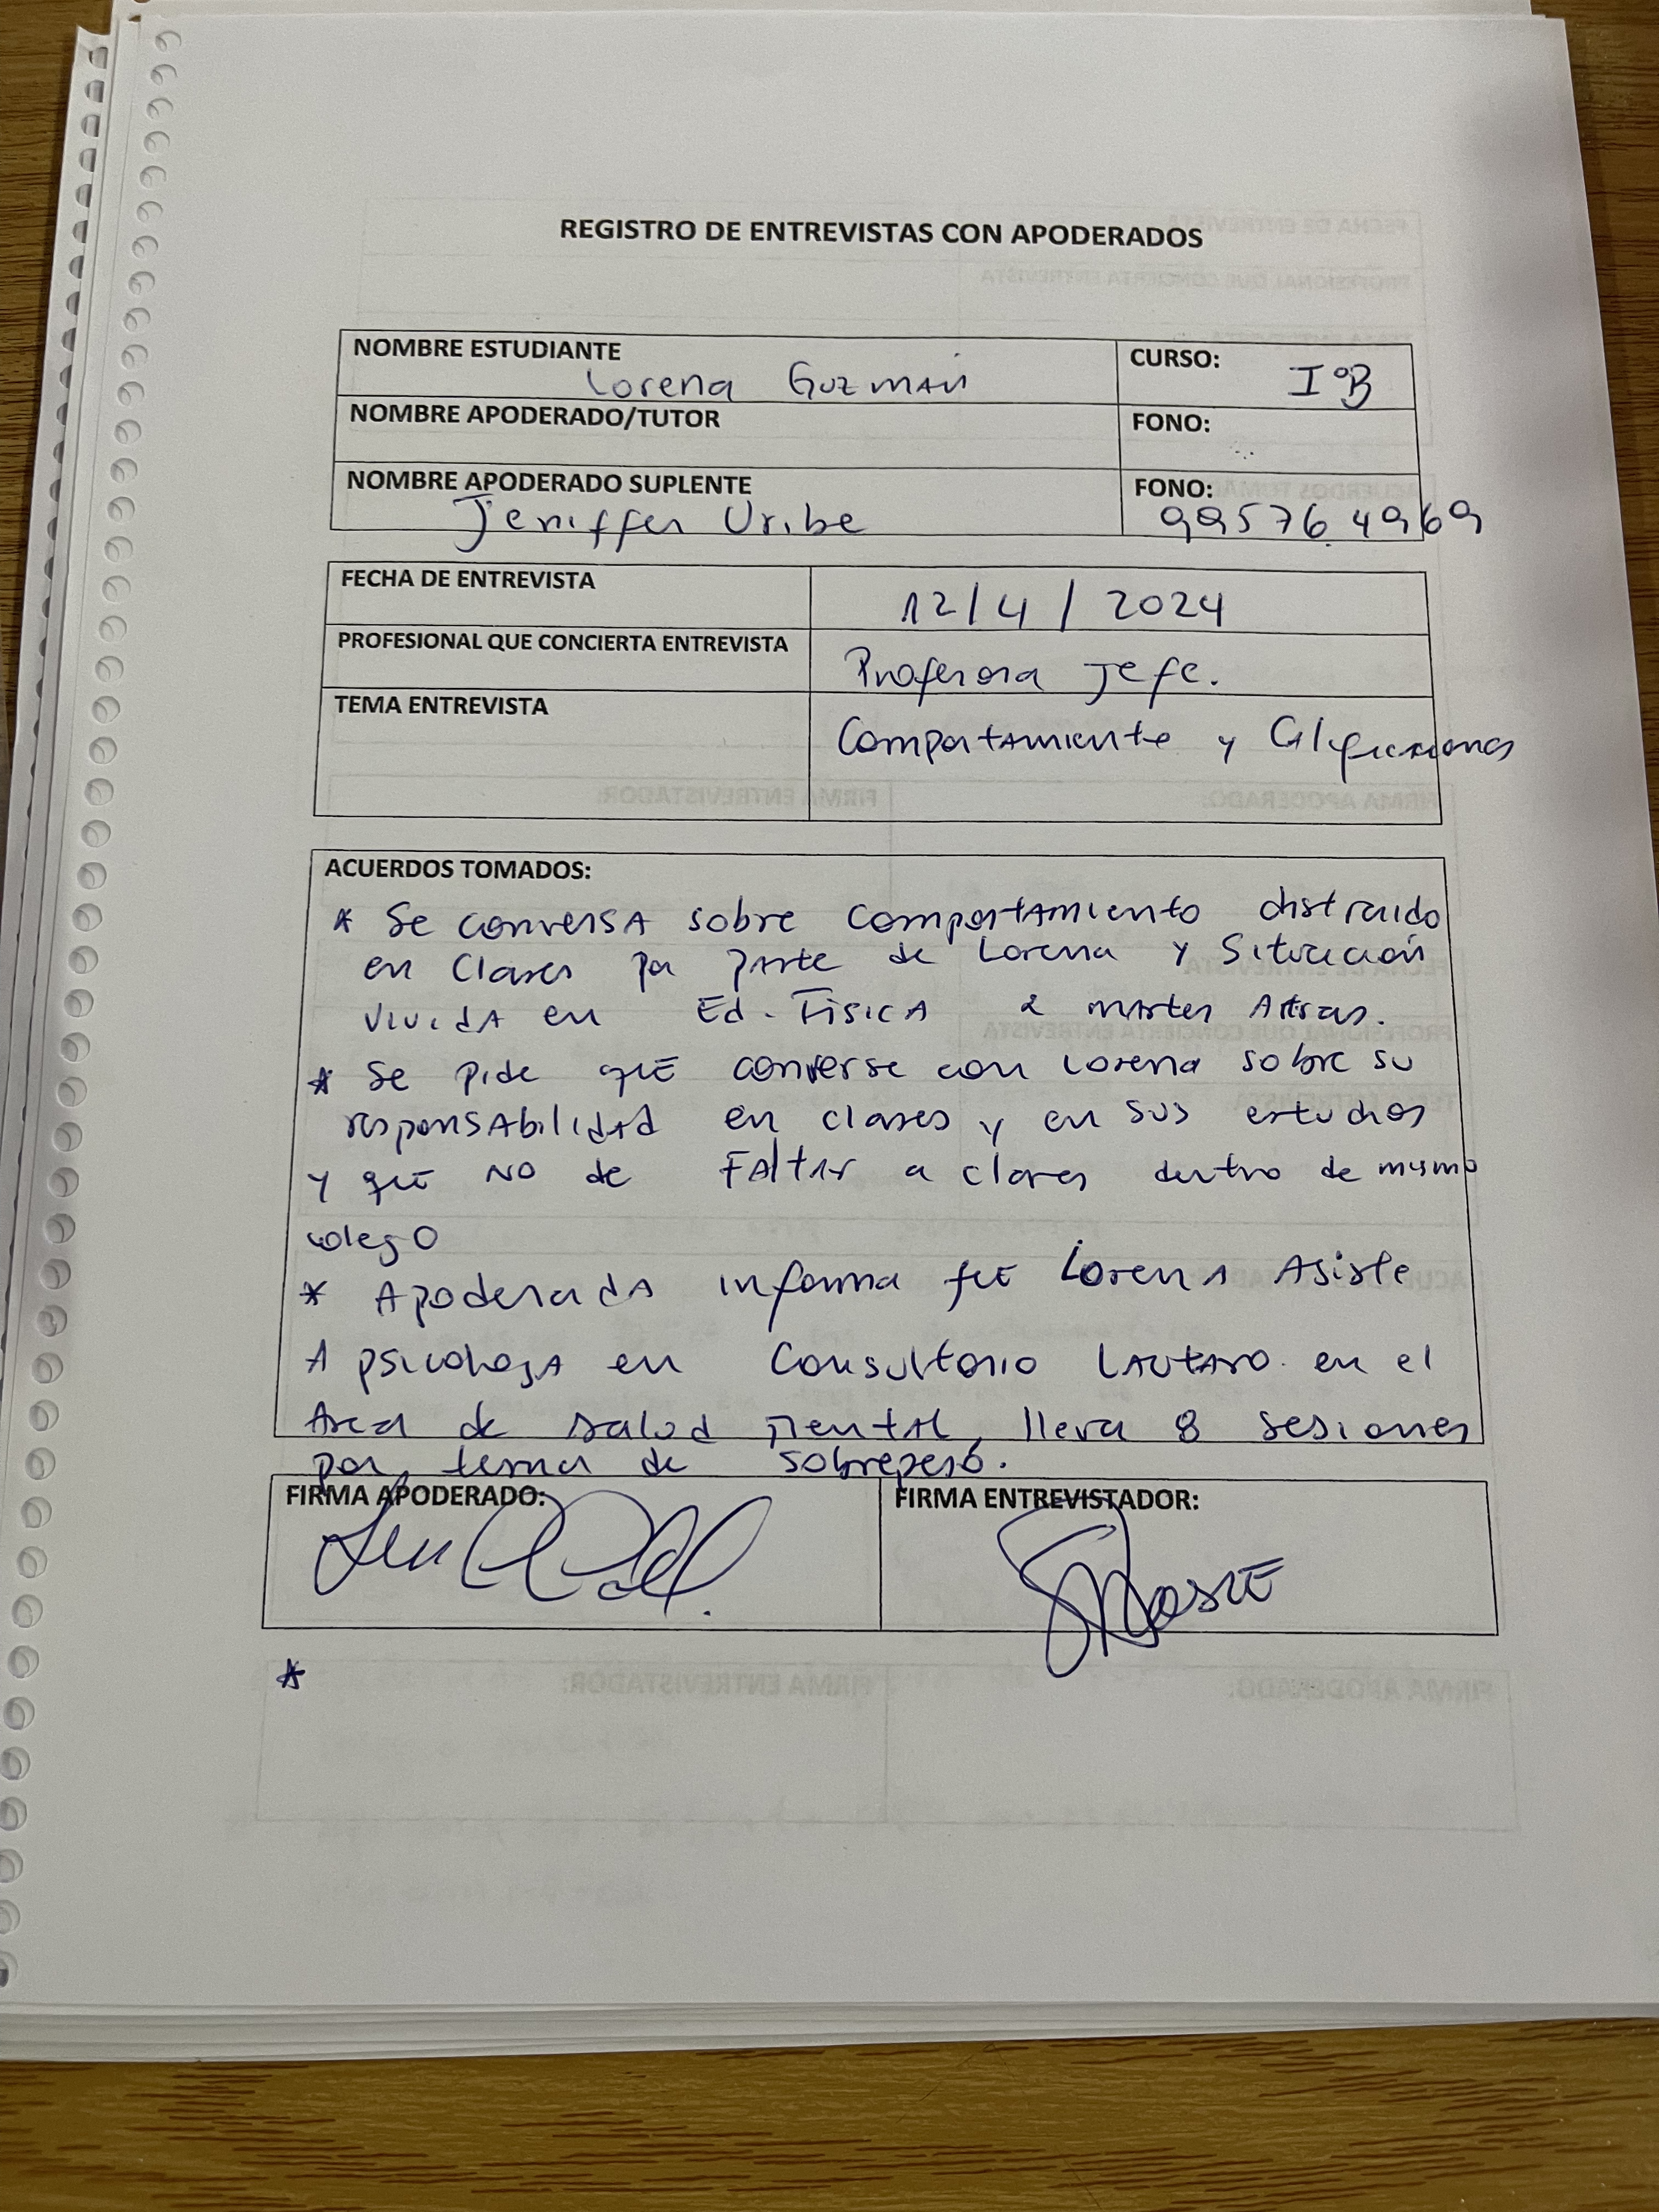 REGISTRO DE ENTREVISTAS CON APODERADOS
NOMBRE ESTUDIANTE
Lorena Guzmán
CURSO:
I°B
NOMBRE APODERADO/TUTOR
FONO:
NOMBRE APODERADO SUPLENTE
Jeniffer Uribe
FONO:
995764969
FECHA DE ENTREVISTA
12/4/2024
PROFESIONAL QUE CONCIERTA ENTREVISTA
Profesora Jefe.
TEMA ENTREVISTA
Comportamiento y
ACUERDOS TOMADOS:
* Se conversa sobre comportamiento distraido
en clases por parte de Lorena y situación
vivida en Ed. Física 2 martes Atras.
* Se pide que converse con Lorena sobre su
responsabilidad en clases y en sus estudios
y que NO de Faltar a clases dentro de mismo
colegO
* Apoderada informa que Lorena Asiste
A psicologa en Consultorio Lautaro en el
Area de salud mental, lleva 8 sesiones
por tema de sobrepeso.
FIRMA APODERADO:
FIRMA ENTREVISTADOR:
*